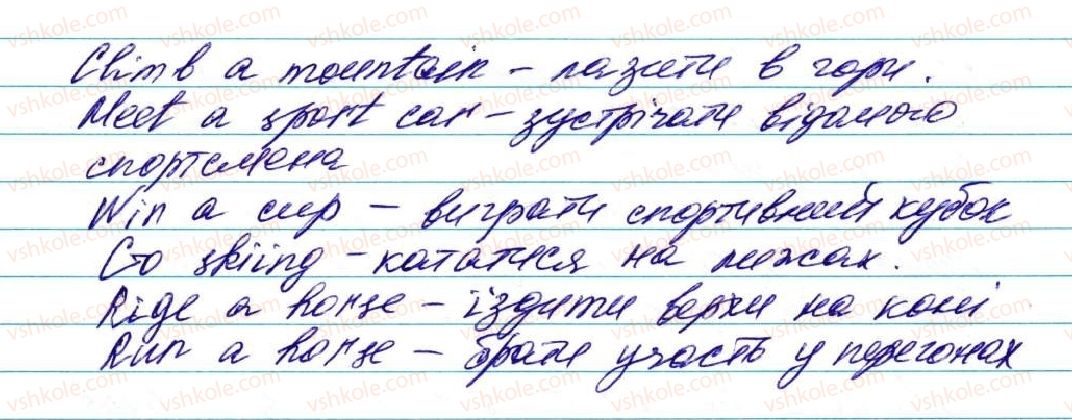 Climb a mountain – лазити в гори.
Meet a sport car – зустрічати відомого
спортсмена
Win a cup – виграти спортивний кубок
Go skiing – кататися на лижах.
Ride a horse – їздити верхи на коні
Run a horse – брати участь у перегонах